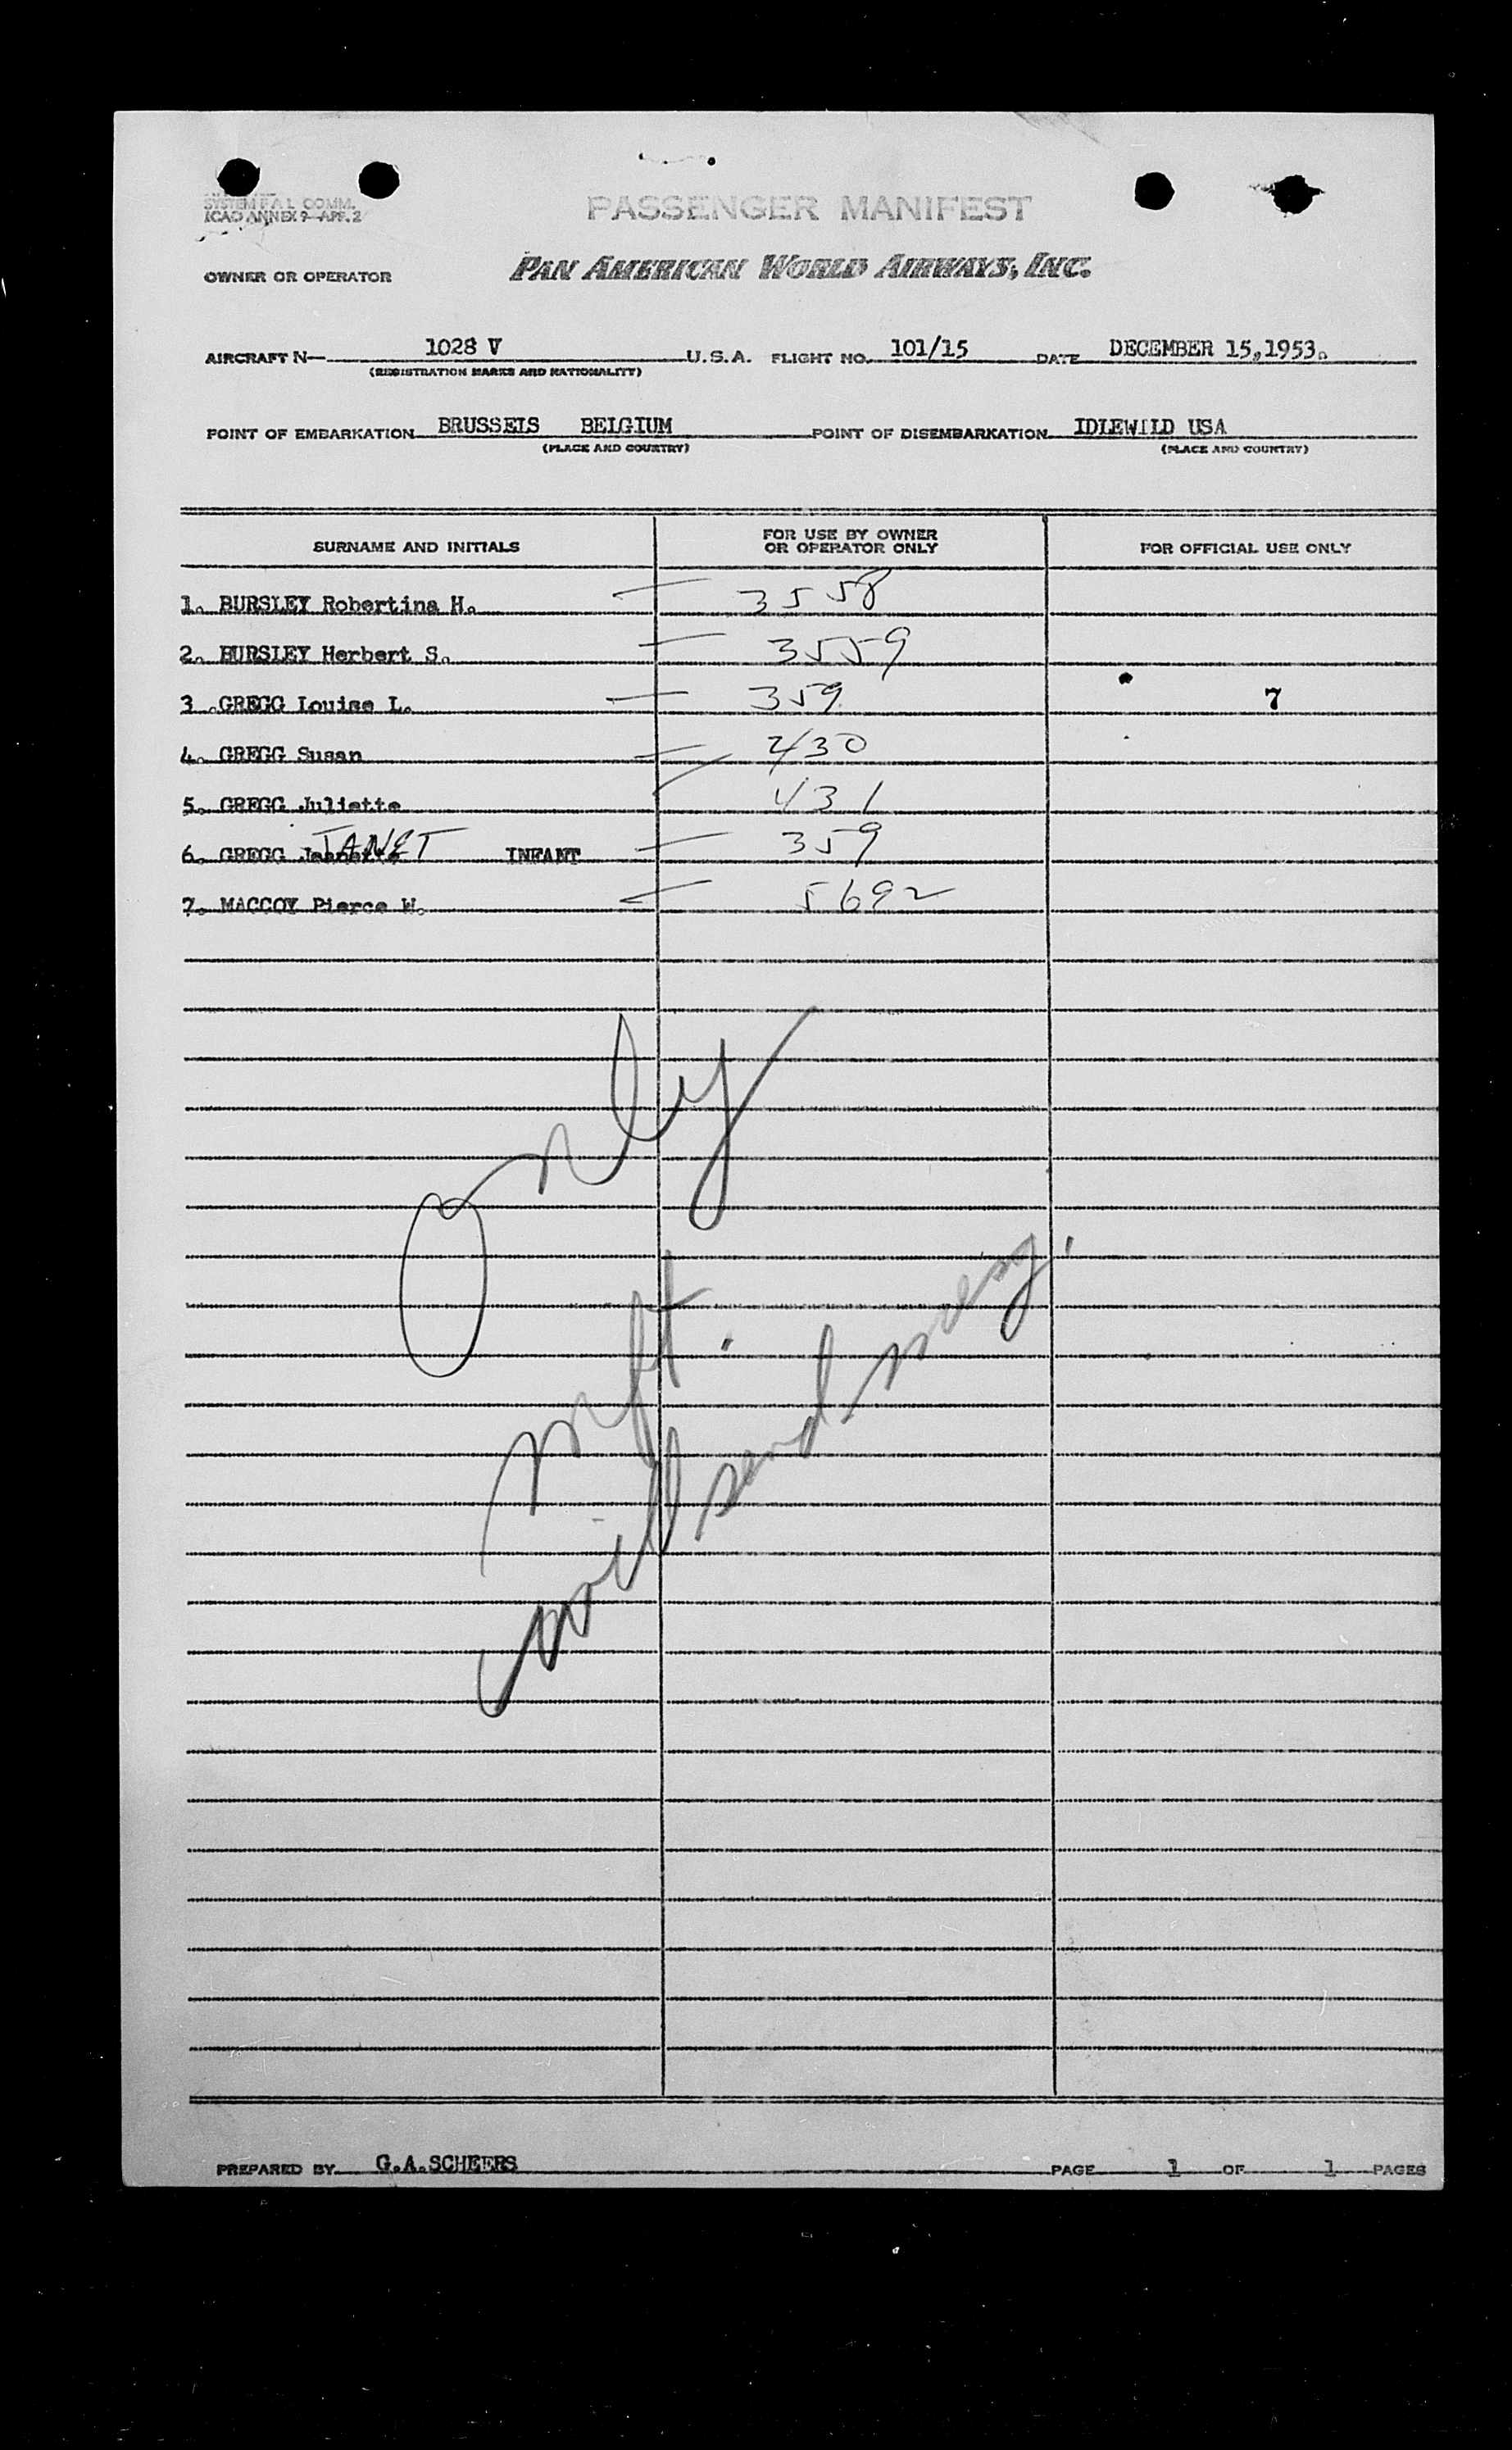 SYSTEM F.A.L. COMM.
ICAO ANNEX 9-APP. 2
PASSENGER MANIFEST
OWNER OR OPERATOR PAN AMERICAN WORLD AIRWAYS, INC.
AIRCRAFT N— 1028 V U.S.A. FLIGHT NO. 101/15 DATE DECEMBER 15,1953.
(REGISTRATION MARKS AND NATIONALITY)
POINT OF EMBARKATION BRUSSELS BELGIUM POINT OF DISEMBARKATION IDLEWILD USA
(PLACE AND COUNTRY) (PLACE AND COUNTRY)
SURNAME AND INITIALS FOR USE BY OWNER OR OPERATOR ONLY FOR OFFICIAL USE ONLY
1. BURSLEY Robertina H. 3558
2. BURSLEY Herbert S. 3559
3 .GREGG Louise L. 359 7
4. GREGG Susan 430
5. GREGG Juliette 431
6. GREGG JANET INFANT 359
7. MACCOY Pierce W. 5692
Only
mft.
will send
PREPARED BY G.A.SCHEERS PAGE 1 OF 1 PAGES